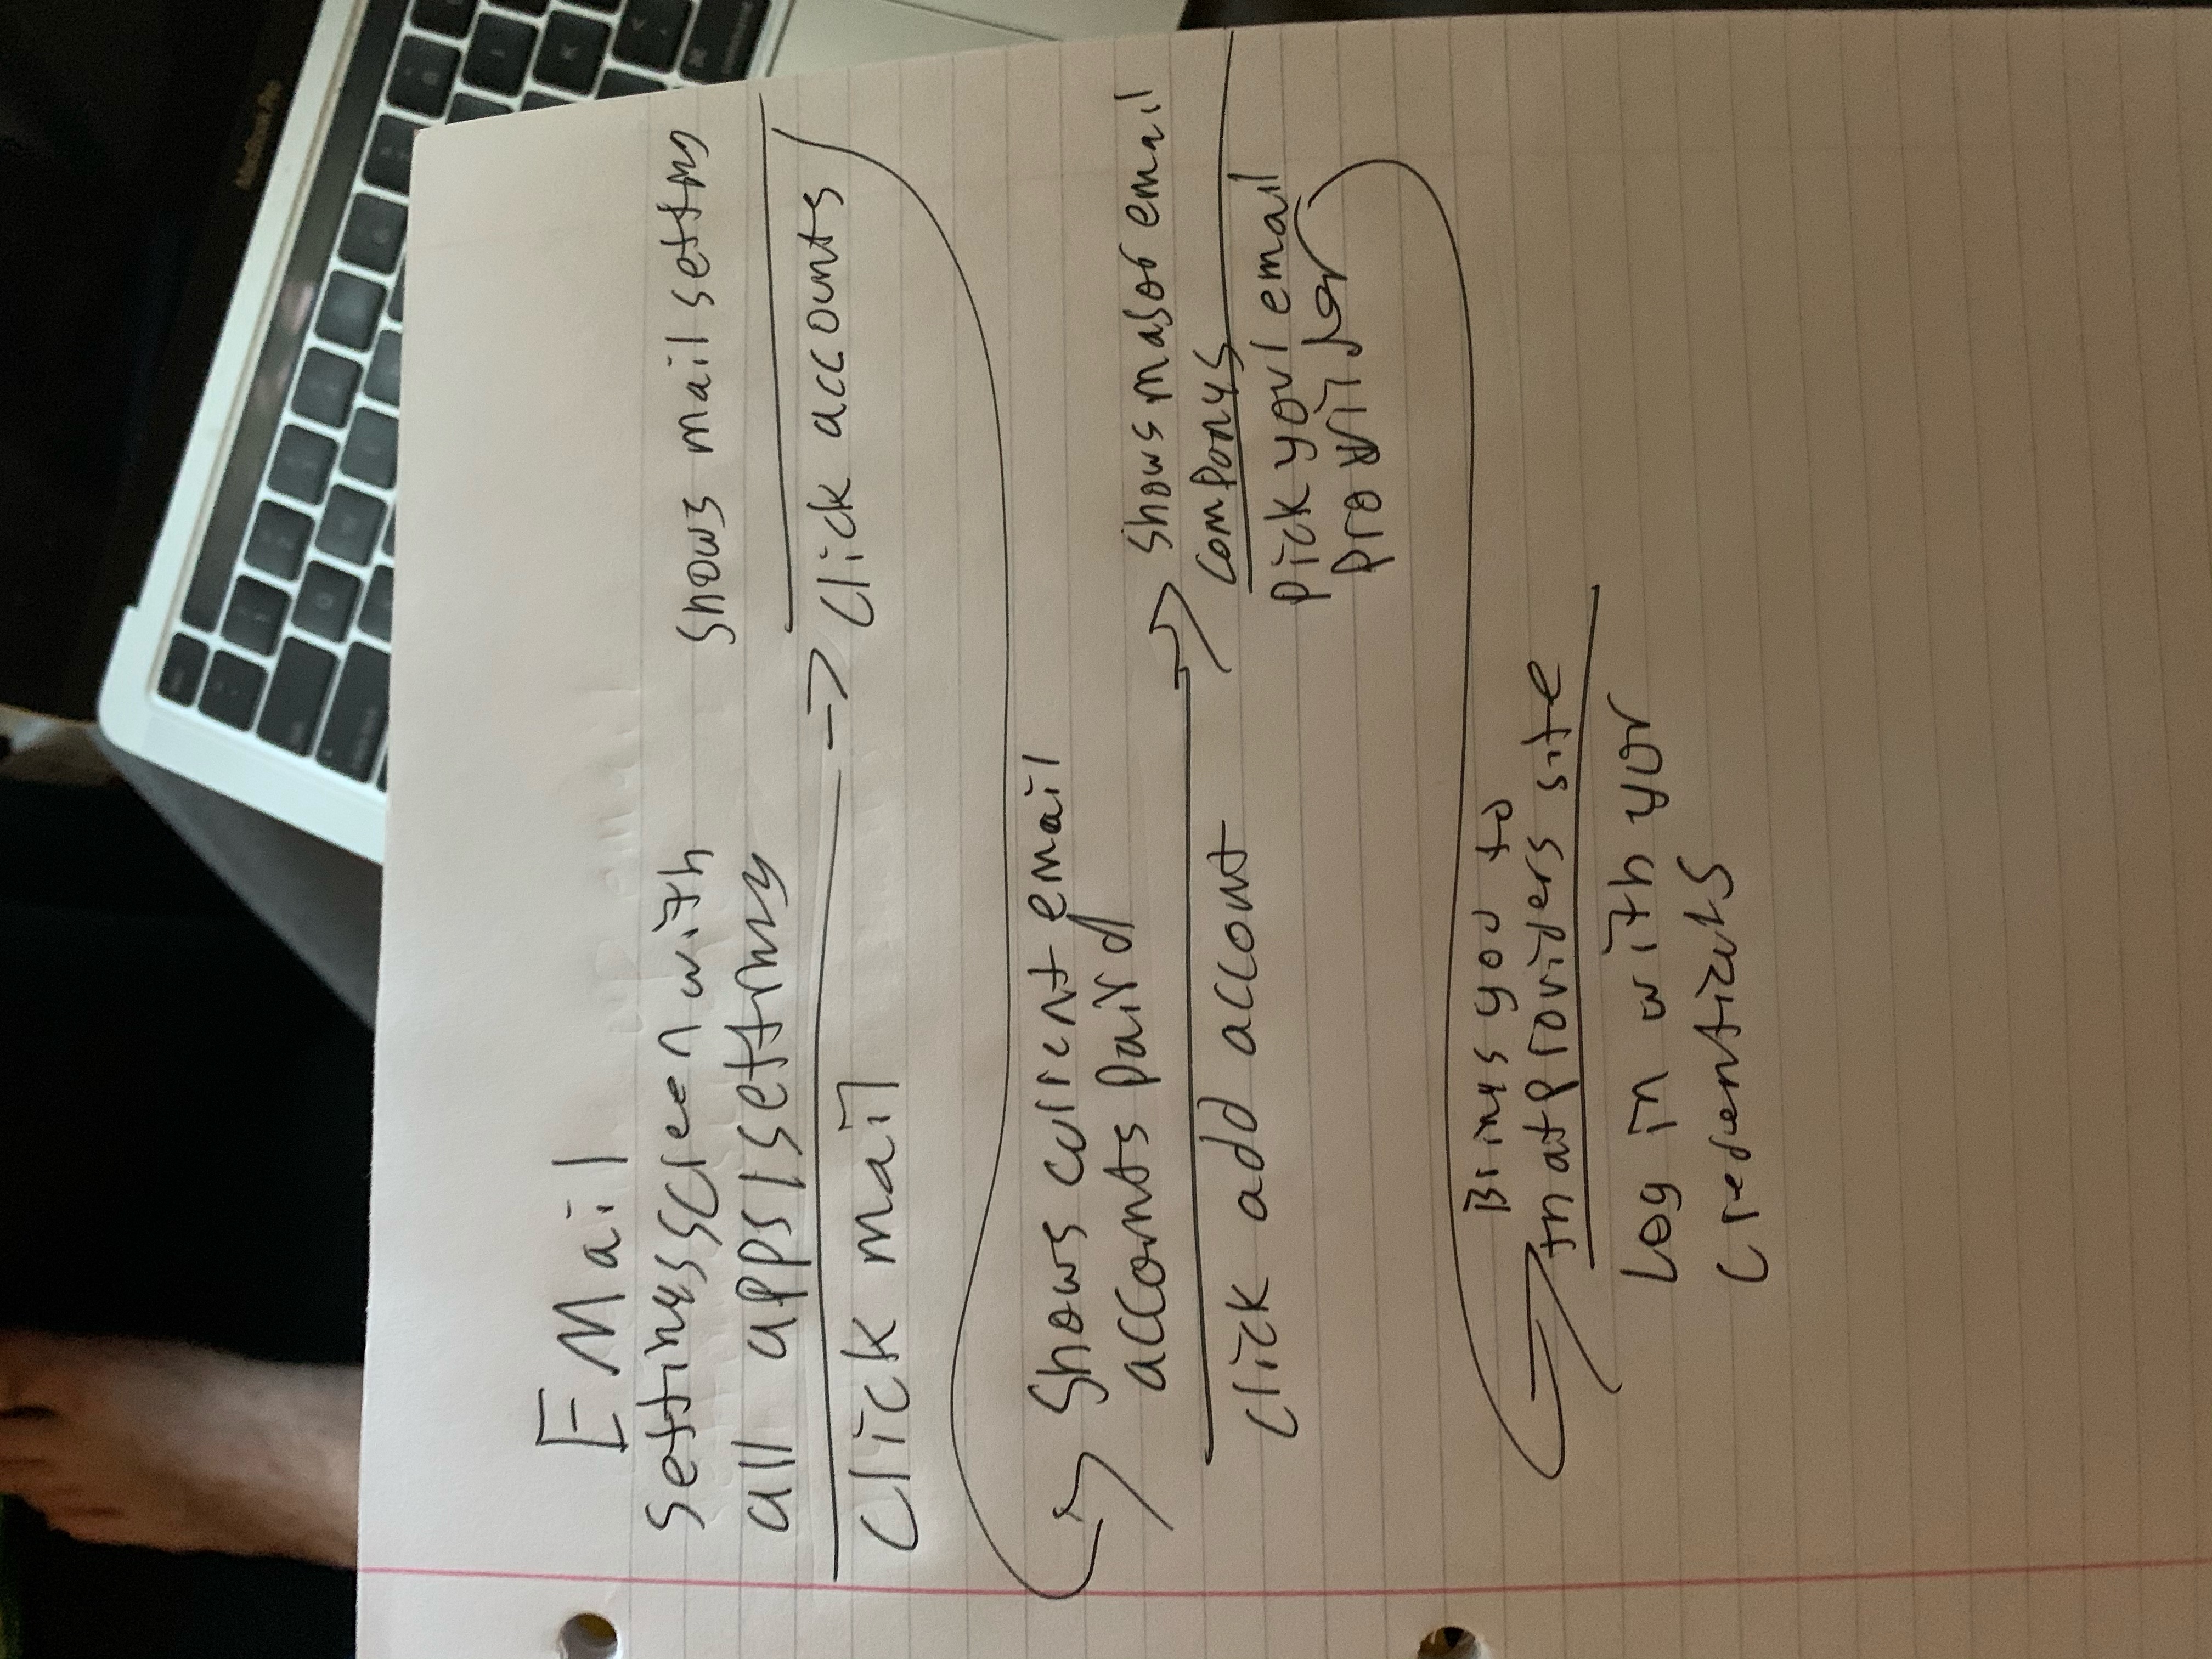 EMail
Settings screen with
all apps/settings
Click mail
->
Shows mail setting
Click accounts
Shows current email
accomnts paird
click add accont
Shows major email
companys
Pick your email
Provider
Brings you to
that providers site
Log in with yor
credentials
MacBook Pro